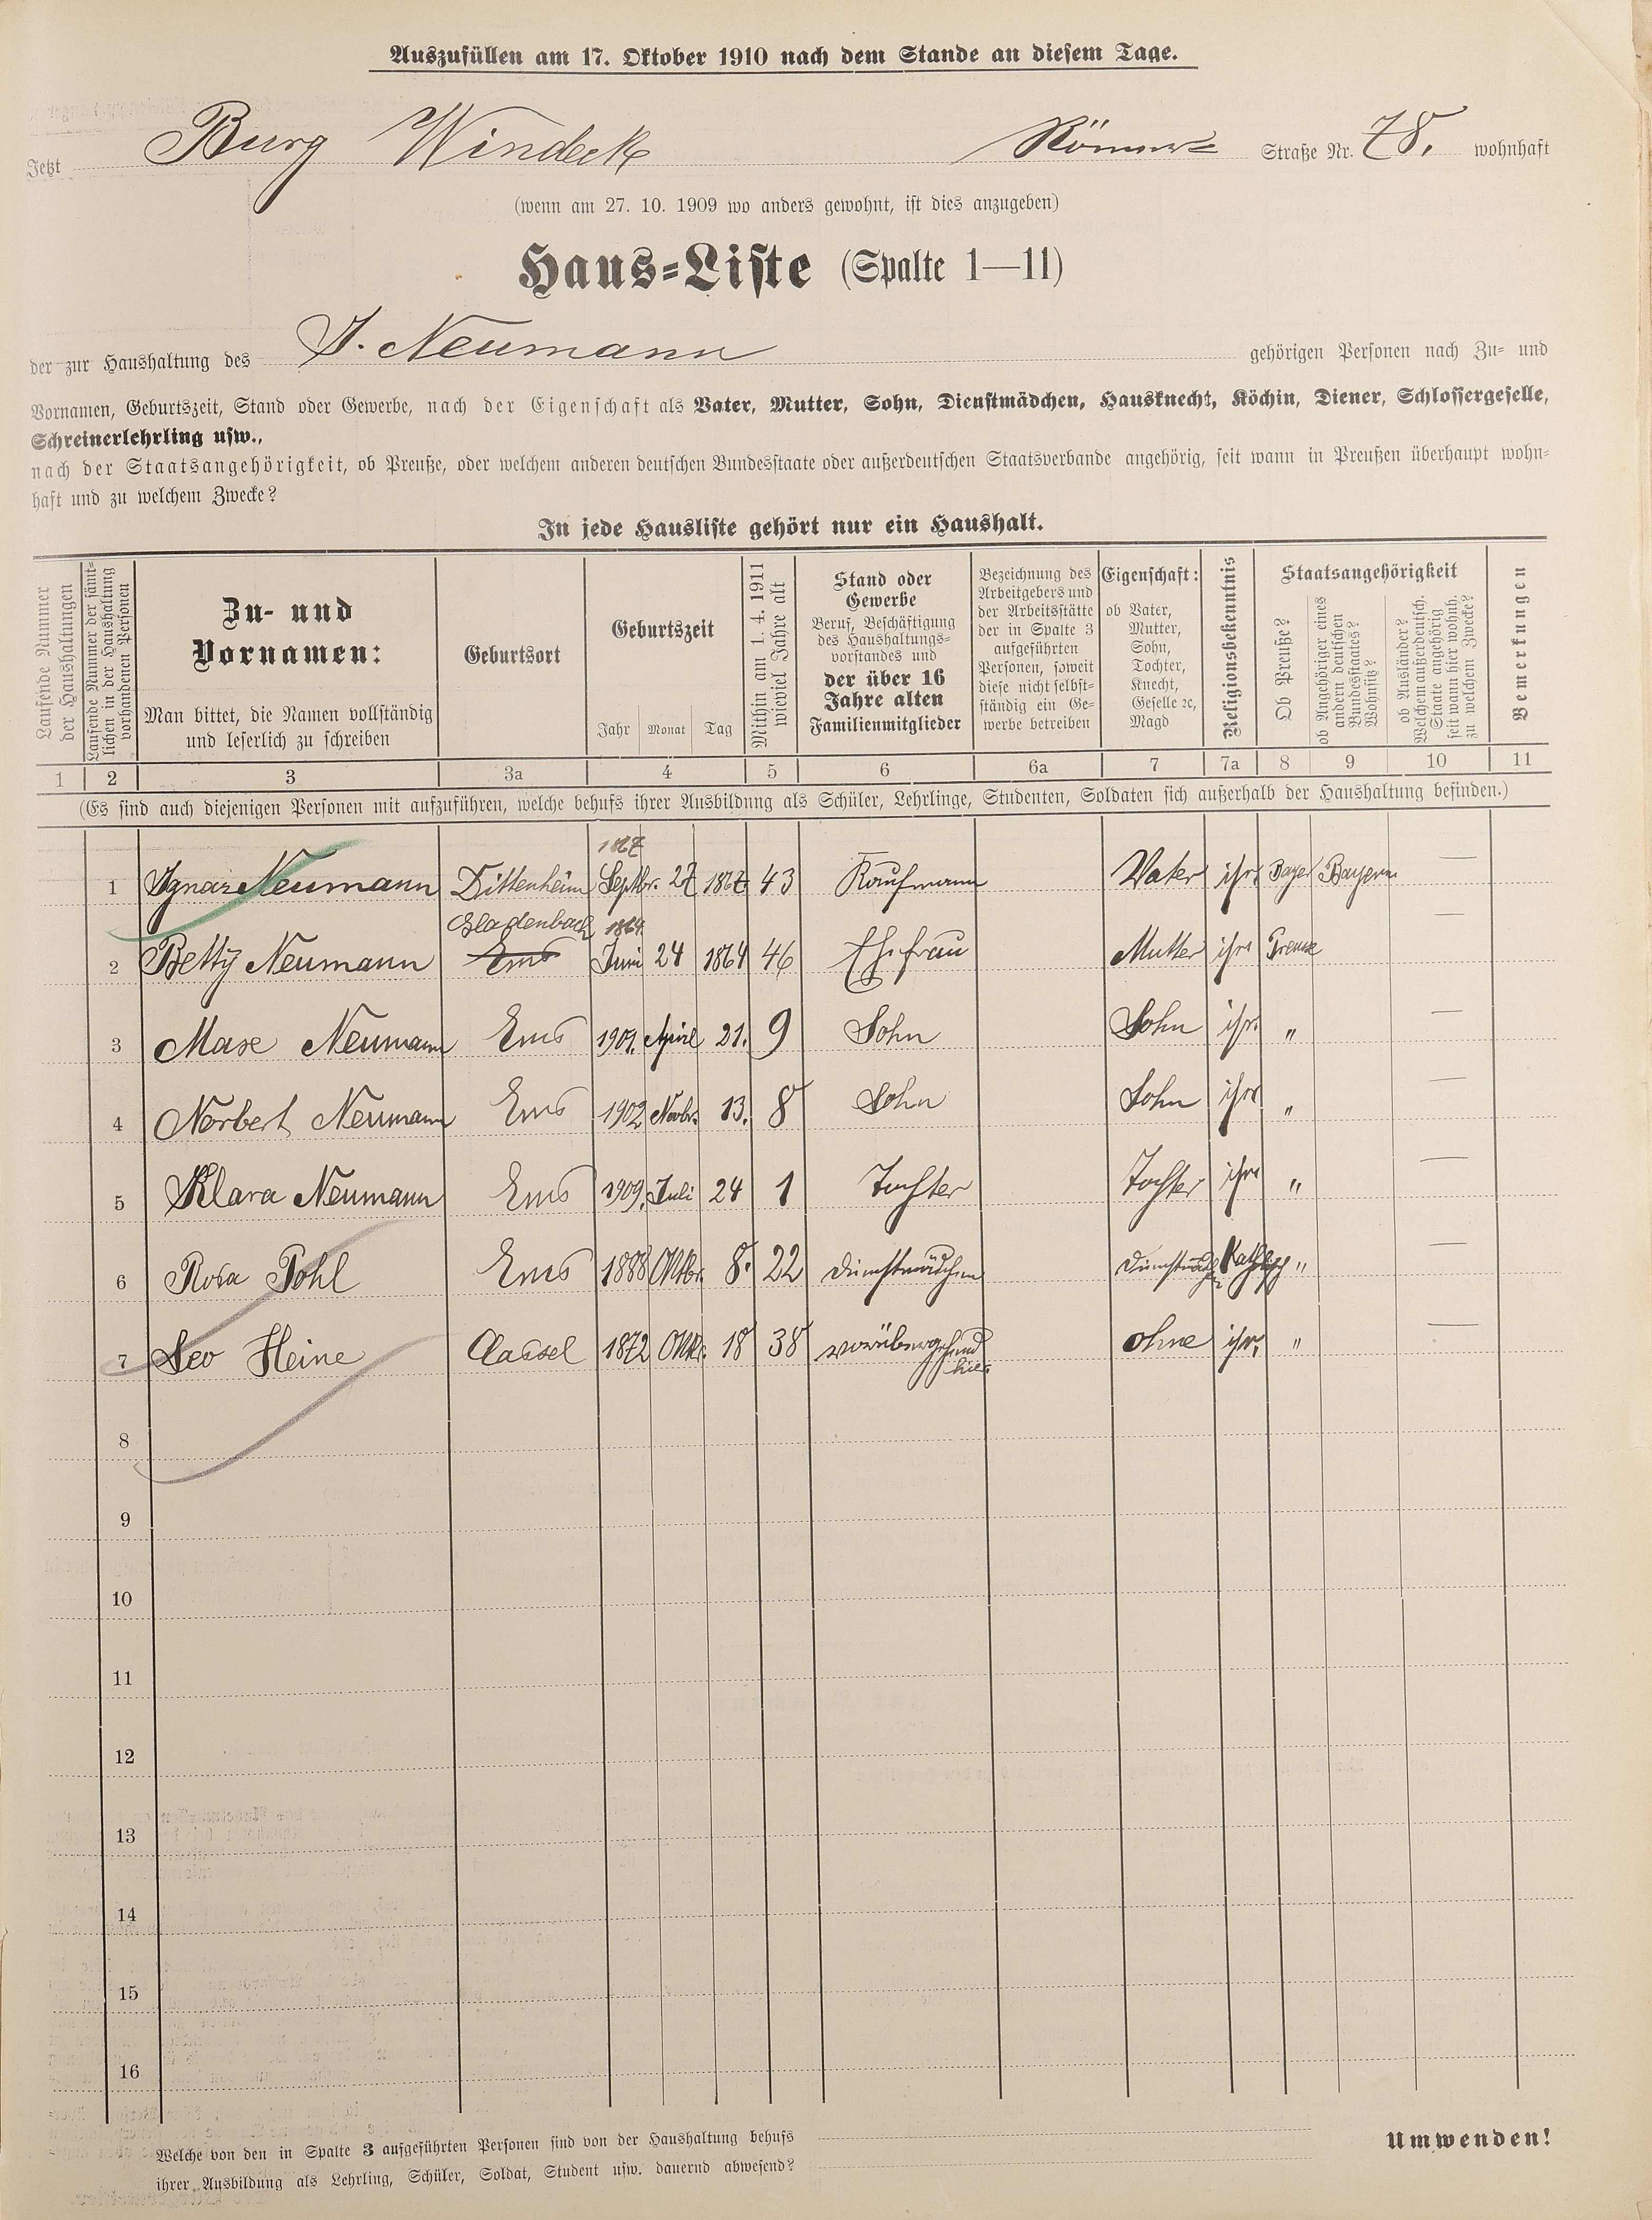 Auszufüllen am 17. Oktober 1910 nach dem Stande an diesem Tage.
Jetzt Burg Windeck Römer Straße Nr. 78. wohnhaft
(wenn am 27. 10. 1909 wo anders gewohnt, ist dies anzugeben)
Haus-Liste (Spalte 1—11)
der zur Haushaltung des J. Neumann gehörigen Personen nach Zu- und
Vornamen, Geburtszeit, Stand oder Gewerbe, nach der Eigenschaft als Vater, Mutter, Sohn, Dienstmädchen, Hausknecht, Köchin, Diener, Schlossergeselle,
Schreinerlehrling usw.,
nach der Staatsangehörigkeit, ob Preuße, oder welchem anderen deutschen Bundesstaate oder außerdeutschen Staatsverbande angehörig, seit wann in Preußen überhaupt wohn-
haft und zu welchem Zwecke?
In jede Hausliste gehört nur ein Haushalt.
Laufende Nummer
der Haushaltungen
Laufende Nummer der sämt-
lichen in der Haushaltung
vorhandenen Personen
Zu- und
Vornamen:
Man bittet, die Namen vollständig
und leserlich zu schreiben
Geburtsort
Geburtszeit
Jahr Monat Tag
Mithin am 1. 4. 1911
wieviel Jahre alt
Stand oder
Gewerbe
Beruf, Beschäftigung
des Haushaltungs-
vorstandes und
der über 16
Jahre alten
Familienmitglieder
Bezeichnung des
Arbeitgebers und
der Arbeitsstätte
der in Spalte 3
aufgeführten
Personen, soweit
diese nicht selbst-
ständig ein Ge-
werbe betreiben
Eigenschaft:
ob Vater,
Mutter,
Sohn,
Tochter,
Knecht,
Geselle ec,
Magd
Religionsbekenntnis
Staatsangehörigkeit
Ob Preuße?
ob Angehöriger eines
andern deutschen
Bundesstaates?
Wohnsitz?
ob Ausländer?
Welchem außerdeutsch.
Staate angehörig
seit wann hier wohnh.
zu welchem Zwecke?
Bemerkungen
1 2 3 3a 4 5 6 6a 7 7a 8 9 10 11
(Es sind auch diejenigen Personen mit aufzuführen, welche behufs ihrer Ausbildung als Schüler, Lehrlinge, Studenten, Soldaten sich außerhalb der Haushaltung befinden.)
1867
1 Ignaz Neumann Dittenheim Septbr. 27 1867 43 Kaufmann Vater isr. Bayer Bayern —
Gladenbach 1864.
2 Betty Neumann Ems Juni 24 1864 46 Ehefrau Mutter isr Preuße —
3 Max Neumann Ems 1901. April 21. 9 Sohn Sohn isr. " —
4 Norbert Neumann Ems 1902 Novbr. 13. 8 Sohn Sohn isr " —
5 Klara Neumann Ems 1909. Juli 24 1 Tochter Tochter isr " —
6 Rosa Pohl Ems 1888 Oktbr. 8. 22 Dienstmädchen " —
7 Leo Heine Cassel 1872 Oktbr. 18 38 vorübergehend ohne isr. " —
hier
8
9
10
11
12
13
14
15
16
Welche von den in Spalte 3 aufgeführten Personen sind von der Haushaltung behufs
ihrer Ausbildung als Lehrling, Schüler, Soldat, Student usw. dauernd abwesend?
Umwenden!